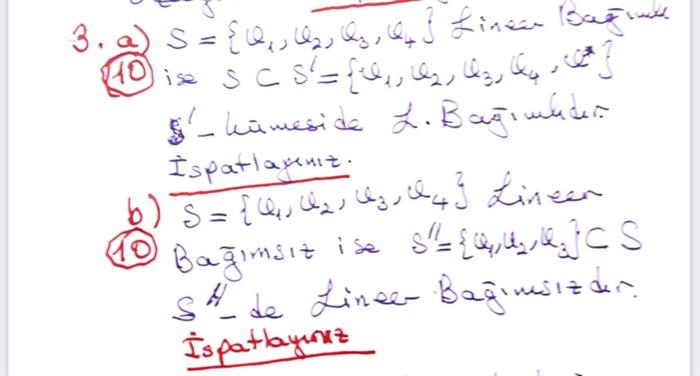 3. a) S = {v₁, v₂, v₃, v₄} Lineer Bağımlı
10 ise S ⊂ S' = {v₁, v₂, v₃, v₄, v*}
S' - kümeside L. Bağımlıdır.
İspatlayınız.
b) S = {v₁, v₂, v₃, v₄} Lineer
10 Bağımsız ise S'' = {v₁, v₂, v₃} ⊂ S
S'' - de Lineer Bağımsızdır.
İspatlayınız